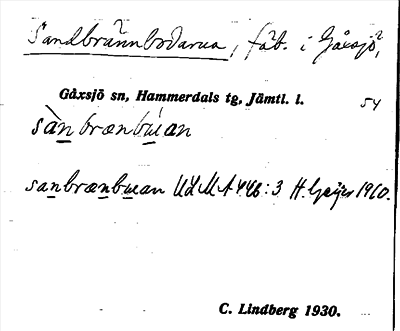 Sandbrännbodarna, fäb. i Gåxsjö,
Gåxsjö sn, Hammerdals tg, Jämtl. l. 54
sànbrænbuan
sanbrænbuan ULMA 446:3 H. Geijer 1910.
C. Lindberg 1930.